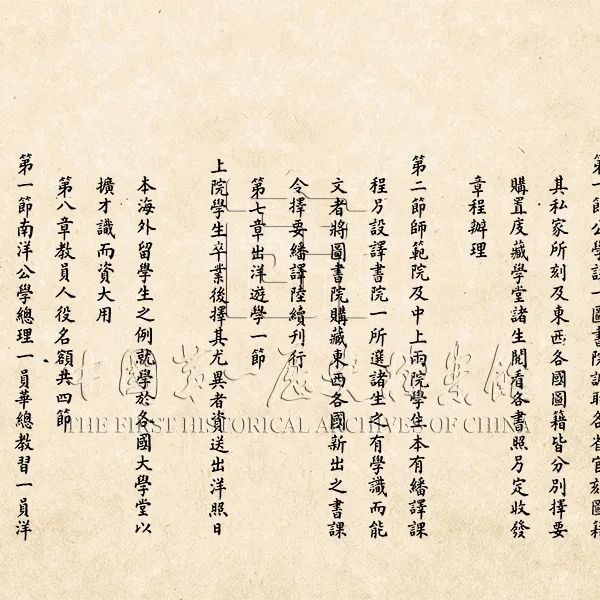 第一節公學設一圖書院調取各省官刻圖籍
其私家所刻及東西各國圖籍皆分別擇要
購置庋藏學堂諸生閱看各書照另定收發
章程辦理
第二節師範院及中上兩院學生本有繙譯課
程另設譯書院一所選諸生之有學識而能
文者將圖書院購藏東西各國新出之書課
令擇要繙譯陸續刊行
第七章出洋遊學一節
上院學生卒業後擇其尤異者資送出洋照日
本海外留學生之例就學於各國大學堂以
擴才識而資大用
第八章教員人役名額共四節
第一節南洋公學總理一員華總教習一員洋
中國第一歷史檔案館
THE FIRST HISTORICAL ARCHIVES OF CHINA